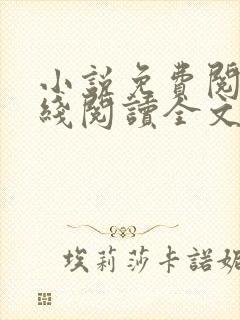 小說免費閱
綫閱讀全文
埃莉莎卡諾妮